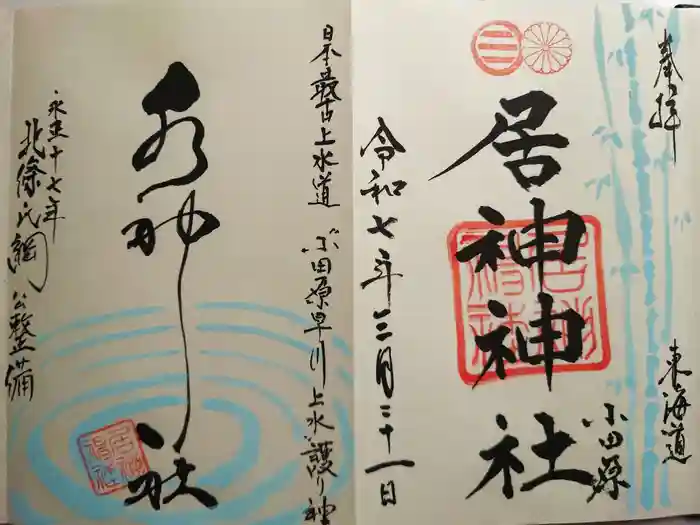 奉拝
東海道
小田原
居神神社
令和七年三月二十一日
日本最古上水道 小田原早川上水 護り神
水神社
永正十七年
北條氏綱公整備
居神神社